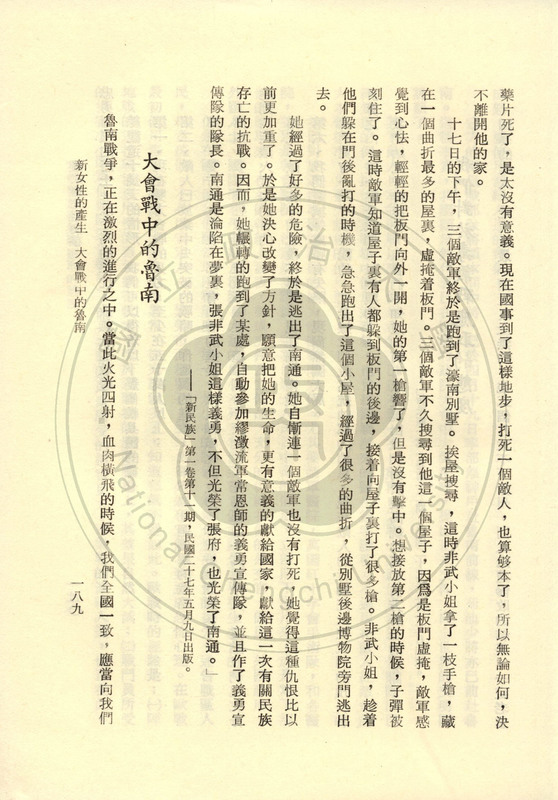 藥片死了，是太沒有意義。現在國事到了這樣地步，打死一個敵人，也算够本了，所以無論如何，決
不離開他的家。
十七日的下午，三個敵軍終於是跑到了濠南別墅。挨屋搜尋，這時非武小姐拿了一枝手槍，藏
在一個曲折最多的屋裏，虛掩着板門。三個敵軍不久搜尋到他這一個屋子，因爲是板門虛掩，敵軍感
覺到心怯，輕輕的把板門向外一開，她的第一槍響了，但是沒有擊中。想接放第二槍的時候，子彈被
刻住了。這時敵軍知道屋子裏有人都躲到板門的後邊，接着向屋子裏打了很多槍。非武小姐，趁着
他們躲在門後亂打的時機，急急跑出了這個小屋，經過了很多的曲折，從別墅後邊博物院旁門逃出
去。
她經過了好多的危險，終於是逃出了南通。她自慚連一個敵軍也沒有打死，她覺得這種仇恨比以
前更加重了。於是她決心改變了方針，願意把她的生命，更有意義的獻給國家，獻給這一次有關民族
存亡的抗戰。因而，她輾轉的跑到了某處，自動參加繆澂流軍常恩師的義勇宣傳隊，並且作了義勇宣
傳隊的隊長。南通是淪陷在夢裏，張非武小姐這樣義勇，不但光榮了張府，也光榮了南通。」
——「新民族」第一卷第十一期，民國二十七年五月九日出版。
大會戰中的魯南
魯南戰爭，正在激烈的進行之中。當此火光四射，血肉橫飛的時候，我們全國一致，應當向我們
新女性的產生 大會戰中的魯南
一八九
國立政治大學
National Chengchi University